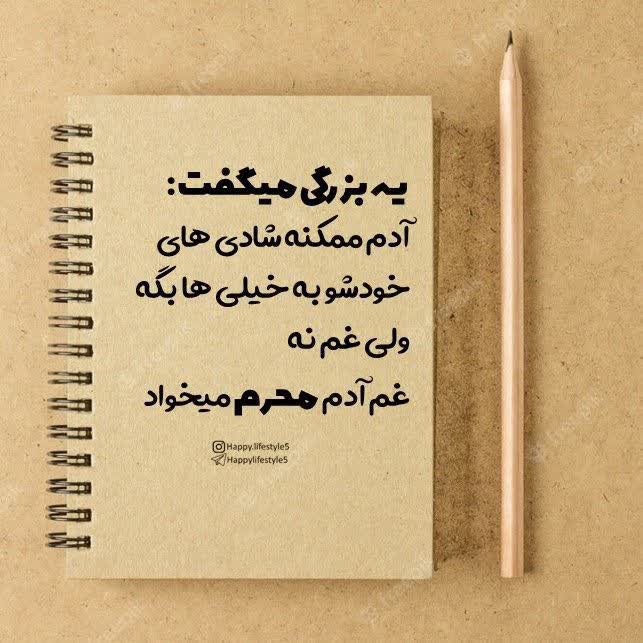 یه بزرگی میگفت:
آدم ممکنه شادی های
خودشو به خیلی ها بگه
ولی غم نه
غم آدم محرم میخواد
Happy.lifestyle5
Happylifestyle5